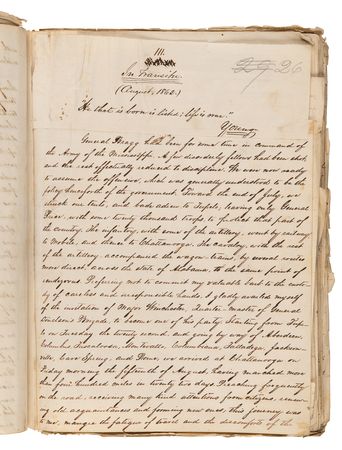 III.
29 26
In Transitu.
(August, 1862.)
"He that is born is listed: life is war."
Young.
General Bragg had been for some time in command of
the Army of the Mississippi. A few disorderly fellows had been shot,
and the rest effectually reduced to discipline. We were now ready
to assume the offensive, which was generally understood to be the
policy henceforth of the government. Toward the end of July, we
struck our tents, and bade adieu to Tupelo, leaving only General
Price, with some twenty thousand troops to protect that part of
the country. The infantry, with some of the artillery, went by railway
to Mobile, and thence to Chattanooga. The cavalry, with the rest
of the artillery, accompanied the wagon trains, by several routes
more direct, across the state of Alabama, to the same point of
rendezvous. Preferring not to commit my valuable bay to the custo-
dy of careless and irresponsible hands, I gladly availed myself
of the invitation of Major Winchester, Quarter-master of General
Brigade, to become one of his party. Starting from Tupe-
lo on Tuesday the twenty second, and going by way of Aberdeen,
Columbus, Tuscaloosa, Centreville, Columbiana, Talladega, Jackson-
ville, Cave Spring, and Rome, we arrived at Chattanooga on
Friday morning the fifteenth of August, having marched more
than four hundred miles in twenty two days. Preaching frequently
on the road, receiving many kind attentions from citizens, renew-
ing old acquaintances and forming new ones, this journey was
to me, maugre the fatigue of travel and the discomforts of the